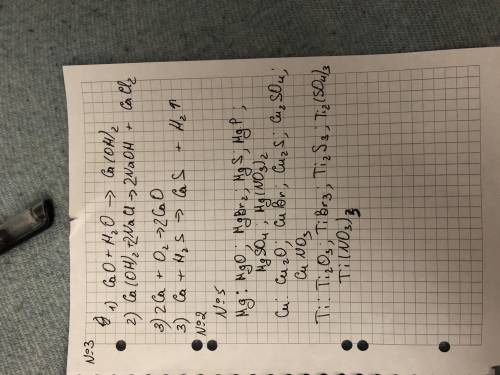 №3
б) 1) CaO + H₂O → Ca(OH)₂
2) Ca(OH)₂ + 2NaCl → 2NaOH + CaCl₂
3) 2Ca + O₂ → 2CaO
3) Ca + H₂S → CaS + H₂↑
№2
№5
Mg: MgO; MgBr₂; MgS; MgP;
MgSO₄; Mg(NO₃)₂
Cu: Cu₂O; CuBr; Cu₂S; Cu₂SO₄;
CuNO₃
Ti: Ti₂O₃; TiBr₃; Ti₂S₃; Ti₂(SO₄)₃
Ti(NO₃)₃